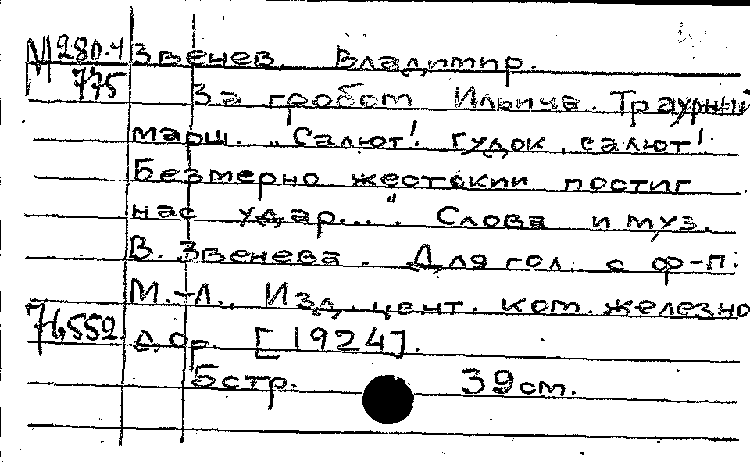 М 280.4 Звенев, Владимир.
775 За гробом Ильича. Траурный
марш. „Салют! гудок, салют!
Безмерно жестокий постиг
нас удар...". Слова и муз.
В. Звенева. Для гол. с ф-п.
М.-Л., Изд. цент. ком. железно
76552 д.ор. [1924].
6стр. 39см.